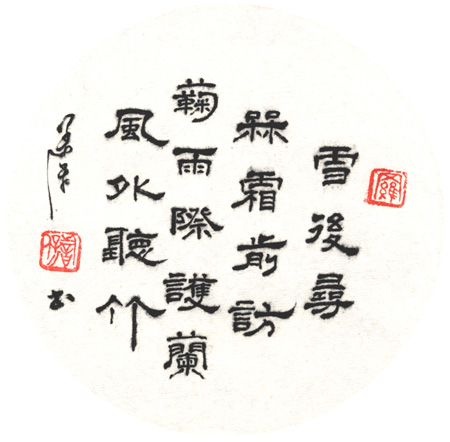 雪後尋
槑霜前訪
蘜雨際護蘭
風外聽竹
书